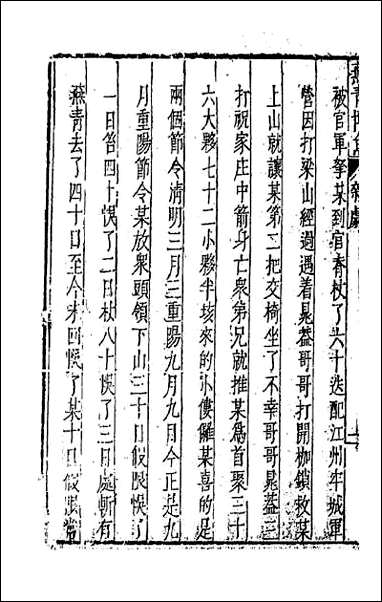 燕青博魚 雜劇
被官軍拏某到官脊杖了六十迭配江州牢城軍
營因打梁山經過遇着晁葢哥哥打開枷鎖救某
上山就讓某第二把交椅坐了不幸哥哥晁葢三
打祝家庄中箭身亡衆第兄就推某爲首聚三十
六大夥七十二小夥半垓來的小僂儸某喜的是
兩個節令清明三月三重陽九月九今正是九
月重陽節令某放衆頭領下山三十日假限悞了
一日笞四十悞了二日杖八十悞了三日處斬有
燕青去了四十日至今才回悞了某十日假限常